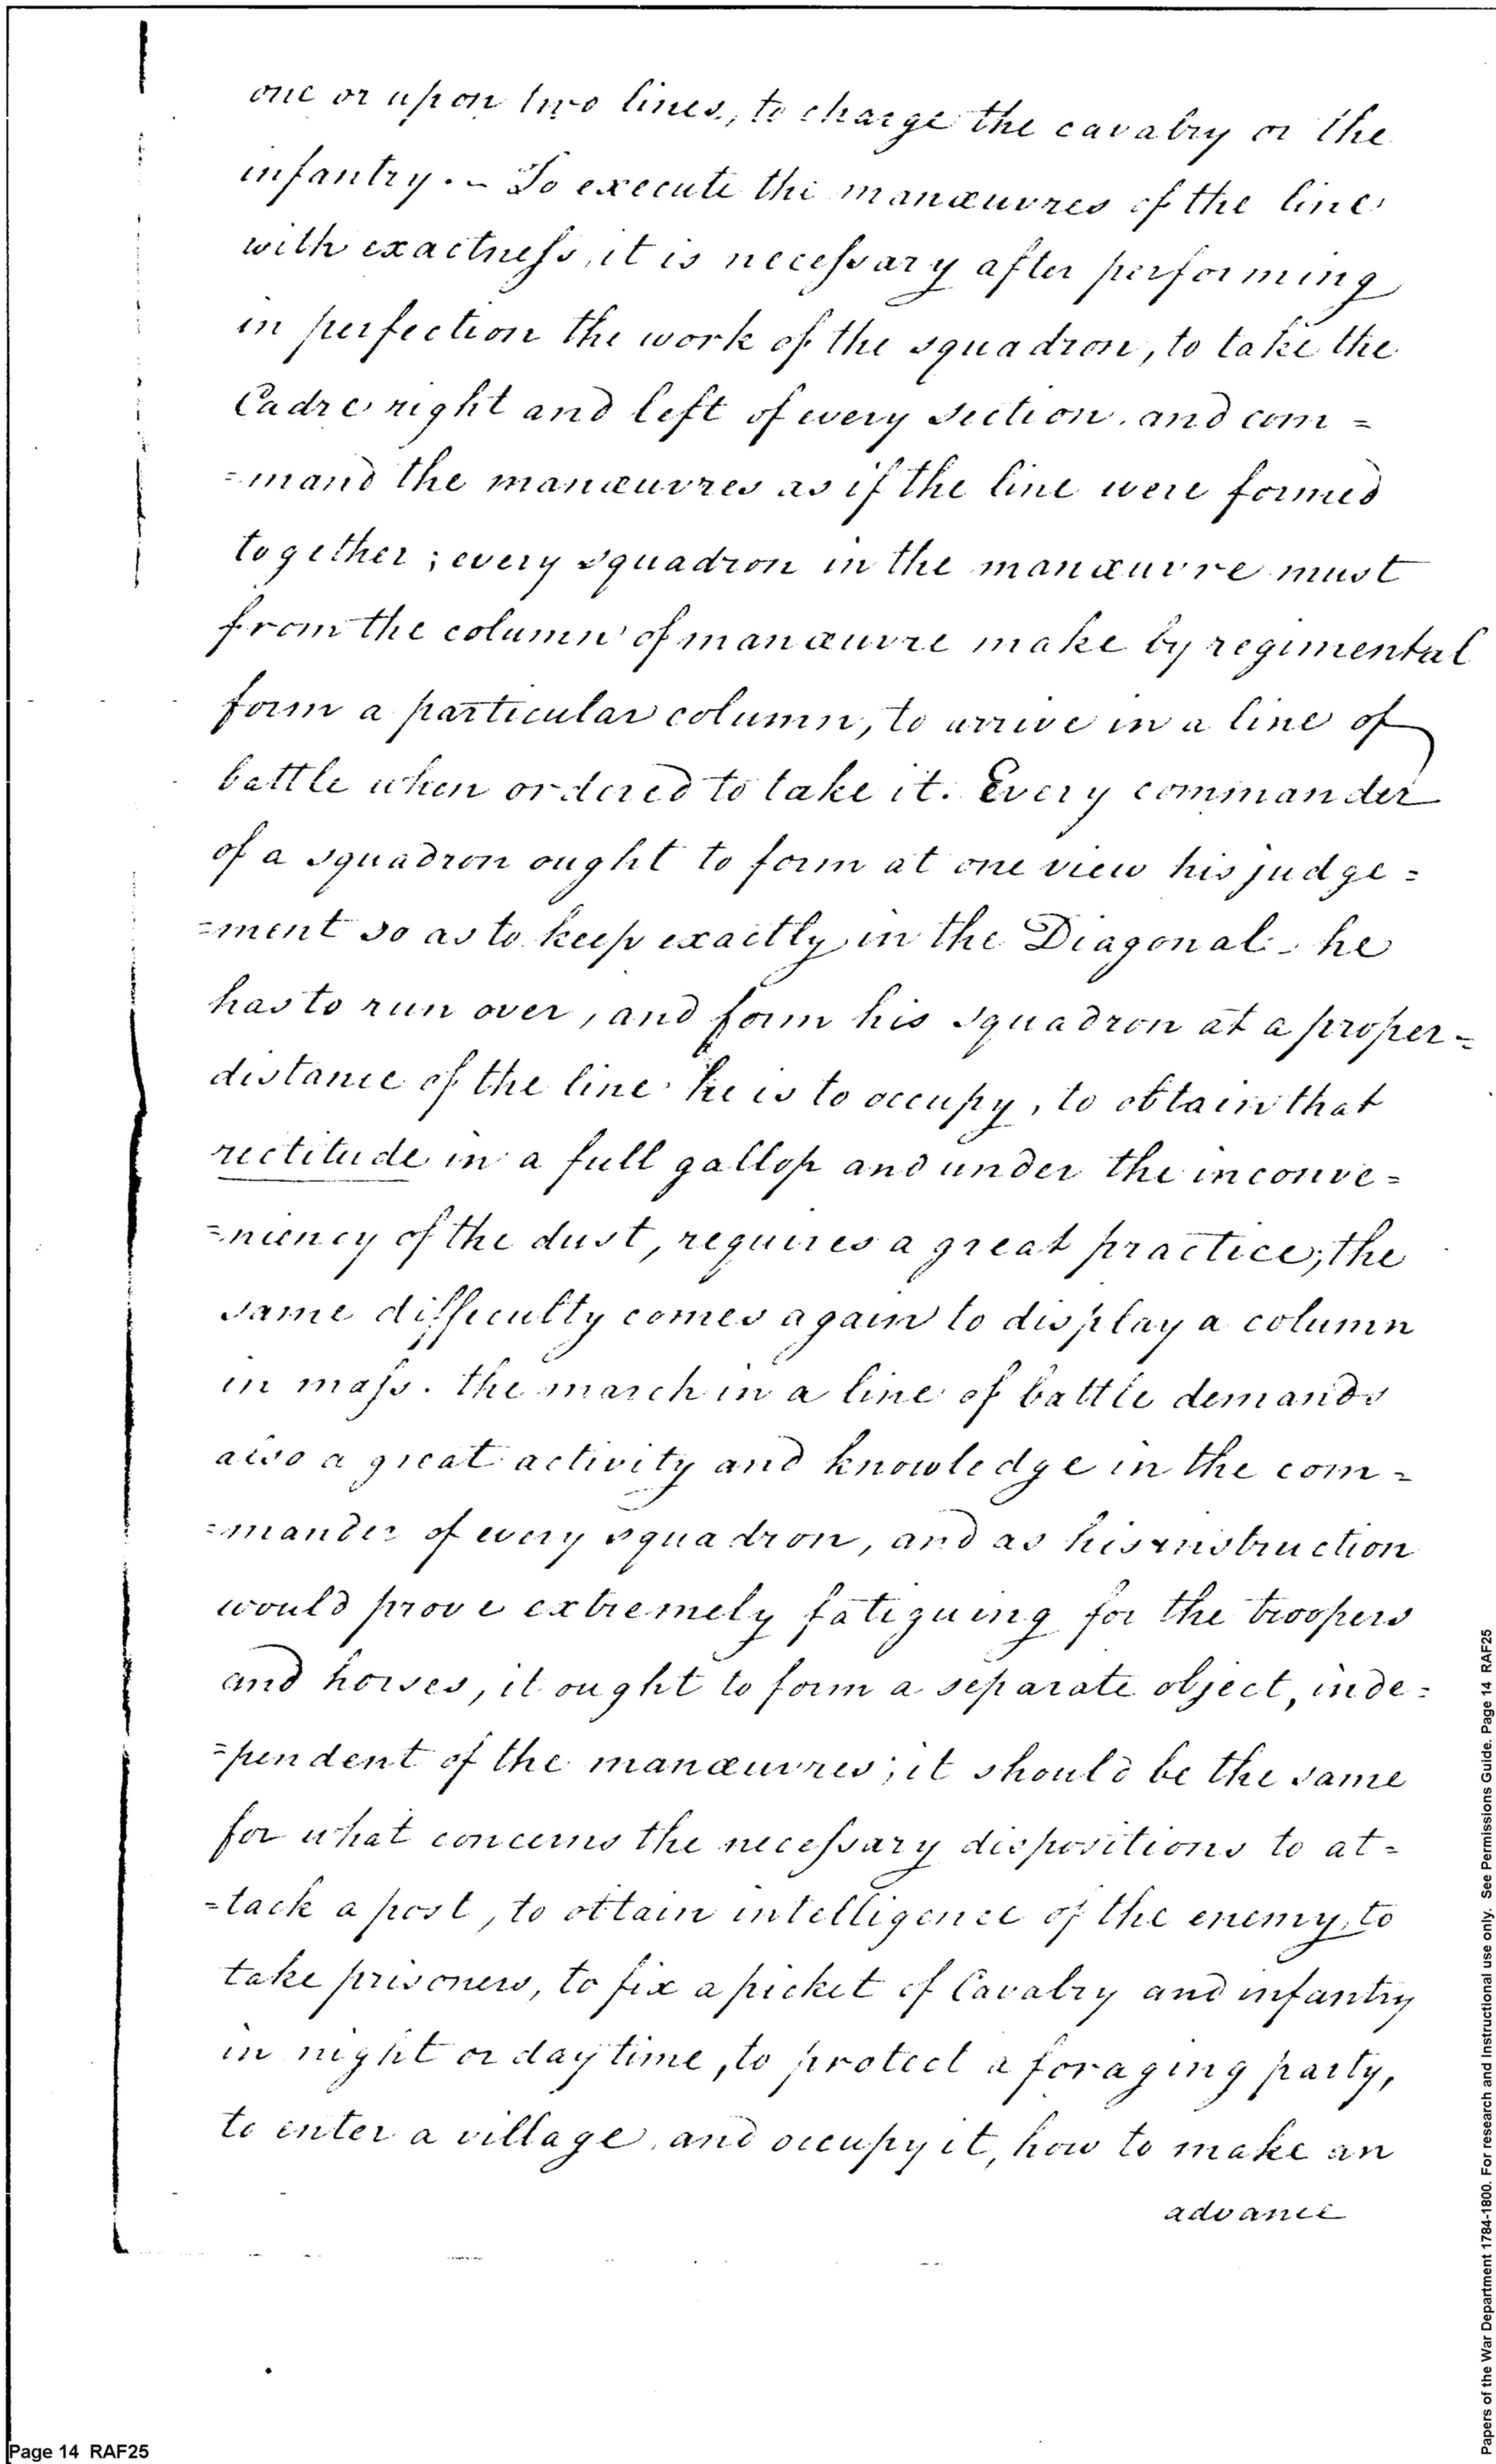 one or upon two lines, to charge the cavalry or the
infantry. - To execute the manœuvres of the line
with exactneſs, it is neceſsary after performing
in perfection the work of the squadron, to take the
Cadre right and left of every section, and com =
=mand the manœuvres as if the line were formed
together ; every squadron in the manœuvre must
from the column of manœuvre make by regimental
form a particular column, to arrive in a line of
battle when ordered to take it. Every commander
of a squadron ought to form at one view his judge =
=ment so as to keep exactly in the Diagonal - he
has to run over, and form his squadron at a proper -
distance of the line he is to occupy, to obtain that
rectitude in a full gallop and under the inconve =
=niency of the dust, requires a great practice; the
same difficulty comes again to display a column
in maſs. the march in a line of battle demands
also a great activity and knowledge in the com =
=mander of every squadron, and as his instruction
would prove extremely fatiguing for the troopers
and horses, it ought to form a separate object, inde =
=pendent of the manœuvres; it should be the same
for what concerns the neceſsary dispositions to at =
=tack a post, to obtain intelligence of the enemy, to
take prisoners, to fix a picket of Cavalry and infantry
in night or day time, to protect a foraging party,
to enter a village, and occupy it, how to make an
advance
Page 14 RAF25
Papers of the War Department 1784-1800. For research and instructional use only. See Permissions Guide. Page 14 RAF25